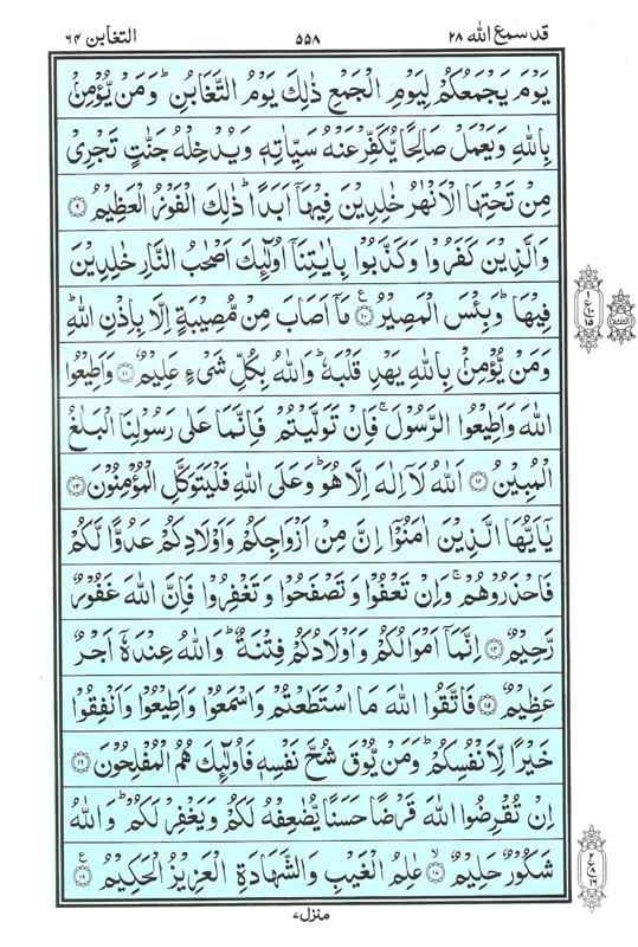 قد سمع الله ٢٨ ٥٥٨ التغابن ٦٤
يَوْمَ يَجْمَعُكُمْ لِيَوْمِ الْجَمْعِ ذٰلِكَ يَوْمُ التَّغَابُنِ ؕ وَمَنْ يُّؤْمِنْۢ
بِاللّٰهِ وَيَعْمَلْ صَالِحًا يُّكَفِّرْ عَنْهُ سَيِّاٰتِهٖ وَيُدْخِلْهُ جَنّٰتٍ تَجْرِىْ
مِنْ تَحْتِهَا الْاَنْهٰرُ خٰلِدِيْنَ فِيْهَاۤ اَبَدًا ؕ ذٰلِكَ الْفَوْزُ الْعَظِيْمُ ۝٩
وَالَّذِيْنَ كَفَرُوْا وَكَذَّبُوْا بِاٰيٰتِنَاۤ اُولٰٓئِكَ اَصْحٰبُ النَّارِ خٰلِدِيْنَ
فِيْهَا ؕ وَبِئْسَ الْمَصِيْرُ ۝١٠ ع مَاۤ اَصَابَ مِنْ مُّصِيْبَةٍ اِلَّا بِاِذْنِ اللّٰهِ ؕ
ع ١ ١٠ ١٥
وَمَنْ يُّؤْمِنْۢ بِاللّٰهِ يَهْدِ قَلْبَهٗ ؕ وَاللّٰهُ بِكُلِّ شَىْءٍ عَلِيْمٌ ۝١١ وَاَطِيْعُوا
اللّٰهَ وَاَطِيْعُوا الرَّسُوْلَ ۚ فَاِنْ تَوَلَّيْتُمْ فَاِنَّمَا عَلٰى رَسُوْلِنَا الْبَلٰغُ
الْمُبِيْنُ ۝١٢ اَللّٰهُ لَاۤ اِلٰهَ اِلَّا هُوَ ؕ وَعَلَى اللّٰهِ فَلْيَتَوَكَّلِ الْمُؤْمِنُوْنَ ۝١٣
يٰۤاَيُّهَا الَّذِيْنَ اٰمَنُوْۤا اِنَّ مِنْ اَزْوَاجِكُمْ وَاَوْلَادِكُمْ عَدُوًّا لَّكُمْ
فَاحْذَرُوْهُمْ ۚ وَاِنْ تَعْفُوْا وَتَصْفَحُوْا وَتَغْفِرُوْا فَاِنَّ اللّٰهَ غَفُوْرٌ
رَّحِيْمٌ ۝١٤ اِنَّمَاۤ اَمْوَالُكُمْ وَاَوْلَادُكُمْ فِتْنَةٌ ؕ وَاللّٰهُ عِنْدَهٗۤ اَجْرٌ
عَظِيْمٌ ۝١٥ فَاتَّقُوا اللّٰهَ مَا اسْتَطَعْتُمْ وَاسْمَعُوْا وَاَطِيْعُوْا وَاَنْفِقُوْا
خَيْرًا لِّاَنْفُسِكُمْ ؕ وَمَنْ يُّوْقَ شُحَّ نَفْسِهٖ فَاُولٰٓئِكَ هُمُ الْمُفْلِحُوْنَ ۝١٦
اِنْ تُقْرِضُوا اللّٰهَ قَرْضًا حَسَنًا يُّضٰعِفْهُ لَكُمْ وَيَغْفِرْ لَكُمْ ؕ وَاللّٰهُ
شَكُوْرٌ حَلِيْمٌ ۝١٧ ۙ عٰلِمُ الْغَيْبِ وَالشَّهَادَةِ الْعَزِيْزُ الْحَكِيْمُ ۝١٨ ع
ع ٢ ٨ ١٦
منزل ٧